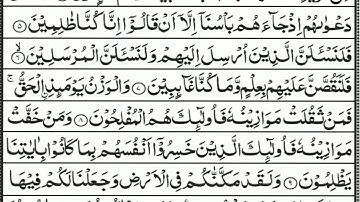 دَعۡوٰٮهُمۡ اِذۡ جَآءَهُمۡ بَاۡسُنَاۤ اِلَّاۤ اَنۡ قَالُوۡۤا اِنَّا كُنَّا ظٰلِمِيۡنَ ۝۵
فَلَنَسۡـَٔـلَنَّ الَّذِيۡنَ اُرۡسِلَ اِلَيۡهِمۡ وَلَنَسۡـَٔـلَنَّ الۡمُرۡسَلِيۡنَ ۝۶
فَلَنَقُصَّنَّ عَلَيۡهِمۡ بِعِلۡمٍ وَّمَا كُنَّا غَآٮِٕبِيۡنَ ۝۷ وَالۡوَزۡنُ يَوۡمَٮِٕذِ اۨلۡحَـقُّ​ ۚ
فَمَنۡ ثَقُلَتۡ مَوَازِيۡنُهٗ فَاُولٰۤٮِٕكَ هُمُ الۡمُفۡلِحُوۡنَ ۝۸ وَمَنۡ خَفَّتۡ
مَوَازِيۡنُهٗ فَاُولٰۤٮِٕكَ الَّذِيۡنَ خَسِرُوۡۤا اَنۡفُسَهُمۡ بِمَا كَانُوۡا بِاٰيٰتِنَا
يَظۡلِمُوۡنَ ۝۹ وَلَقَدۡ مَكَّنّٰكُمۡ فِى الۡاَرۡضِ وَجَعَلۡنَا لَـكُمۡ فِيۡهَا